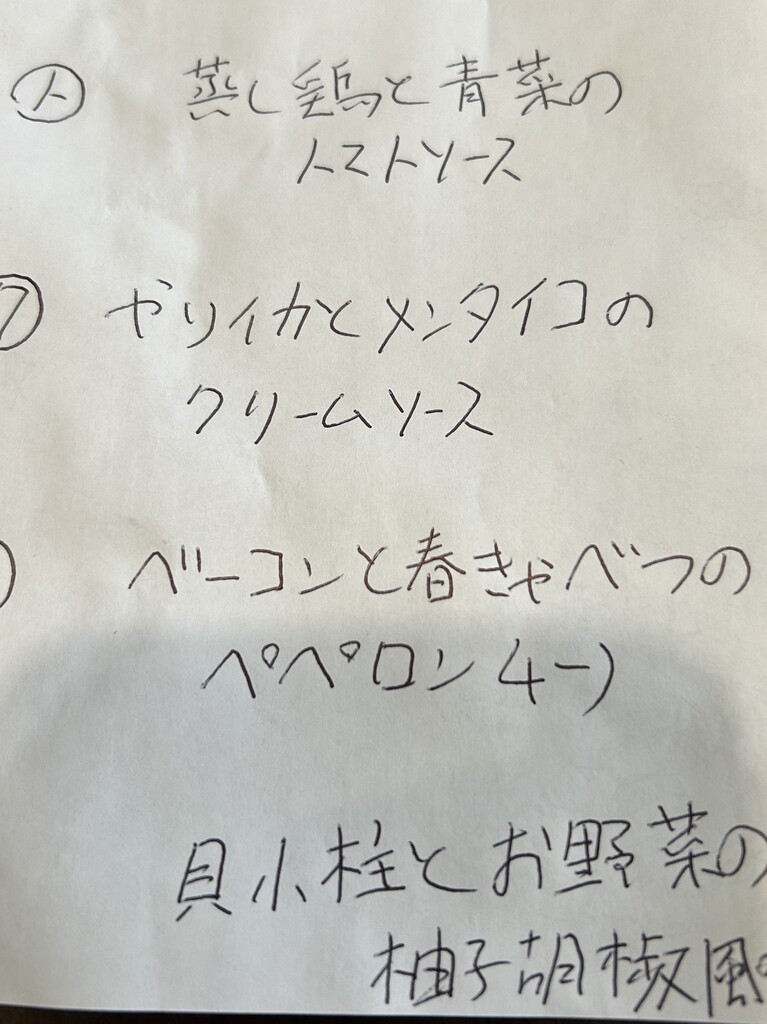 ト 蒸し鶏と青菜の
トマトソース
ク ヤリイカとメンタイコの
クリームソース
ベーコンと春きゃべつの
ペペロンチーノ
貝小柱とお野菜の
柚子胡椒風